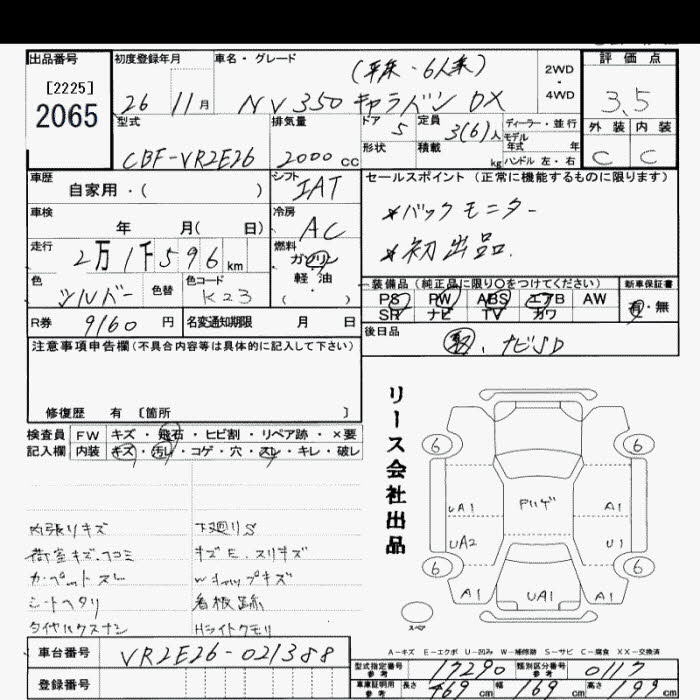 出品番号
[2225]
2065
初度登録年月
26 11月
車名・グレード
(平床・6人乗)
NV350 キャラバン DX
2WD
・
4WD
評価点
3.5
外装 内装
C C
型式
CBF-VR2E26
排気量
2000cc
ドア 5
定員 3(6)人
ディーラー・並行
モデル
年式 年
形状
積載 kg
ハンドル 左・右
車歴
自家用・( )
シフト
IAT
セールスポイント (正常に機能するものに限ります)
*バックモニター
*初出品.
車検
年 月( 日)
冷房
AC
走行
2万1千596km
燃料
ガソリン
軽・油
( ・ )
色
シルバー
色替
色コード
K23
装備品(純正品に限り○をつけてください)
PS PW ABS エアB AW
SR ナビ TV カワ
新車保証書
有・無
R券 9160円
名変通知期限 月 日
後日品
ナビSD
注意事項申告欄(不具合内容等は具体的に記入して下さい)
修復歴 有 〔箇所 〕
検査員 FW キズ・飛石・ヒビ割・リペア跡・×要
記入欄 内装 キズ・汚レ・コゲ・穴・スレ・キレ・破レ
内張リキズ
荷室キズ、ヘコミ
カーペットスレ
シートヘタリ
タイヤハウスナシ
下廻りS
キズE、スリキズ
Wキャップキズ
看板跡
Hライトクモリ
リース会社出品
6 6
UA1 Fリゲ A1
UA2 U1
6 6
A1 UA1 A1
スペア
A-キズ E-エクボ U-凹み W-補修跡 S-サビ C-腐食 XX-交換済
車台番号 VR2E26-021388
登録番号
型式指定番号
参考
17290
類別区分番号
参考
0117
車庫証明用
参考
長さ 469cm 幅 169cm 高さ 199cm